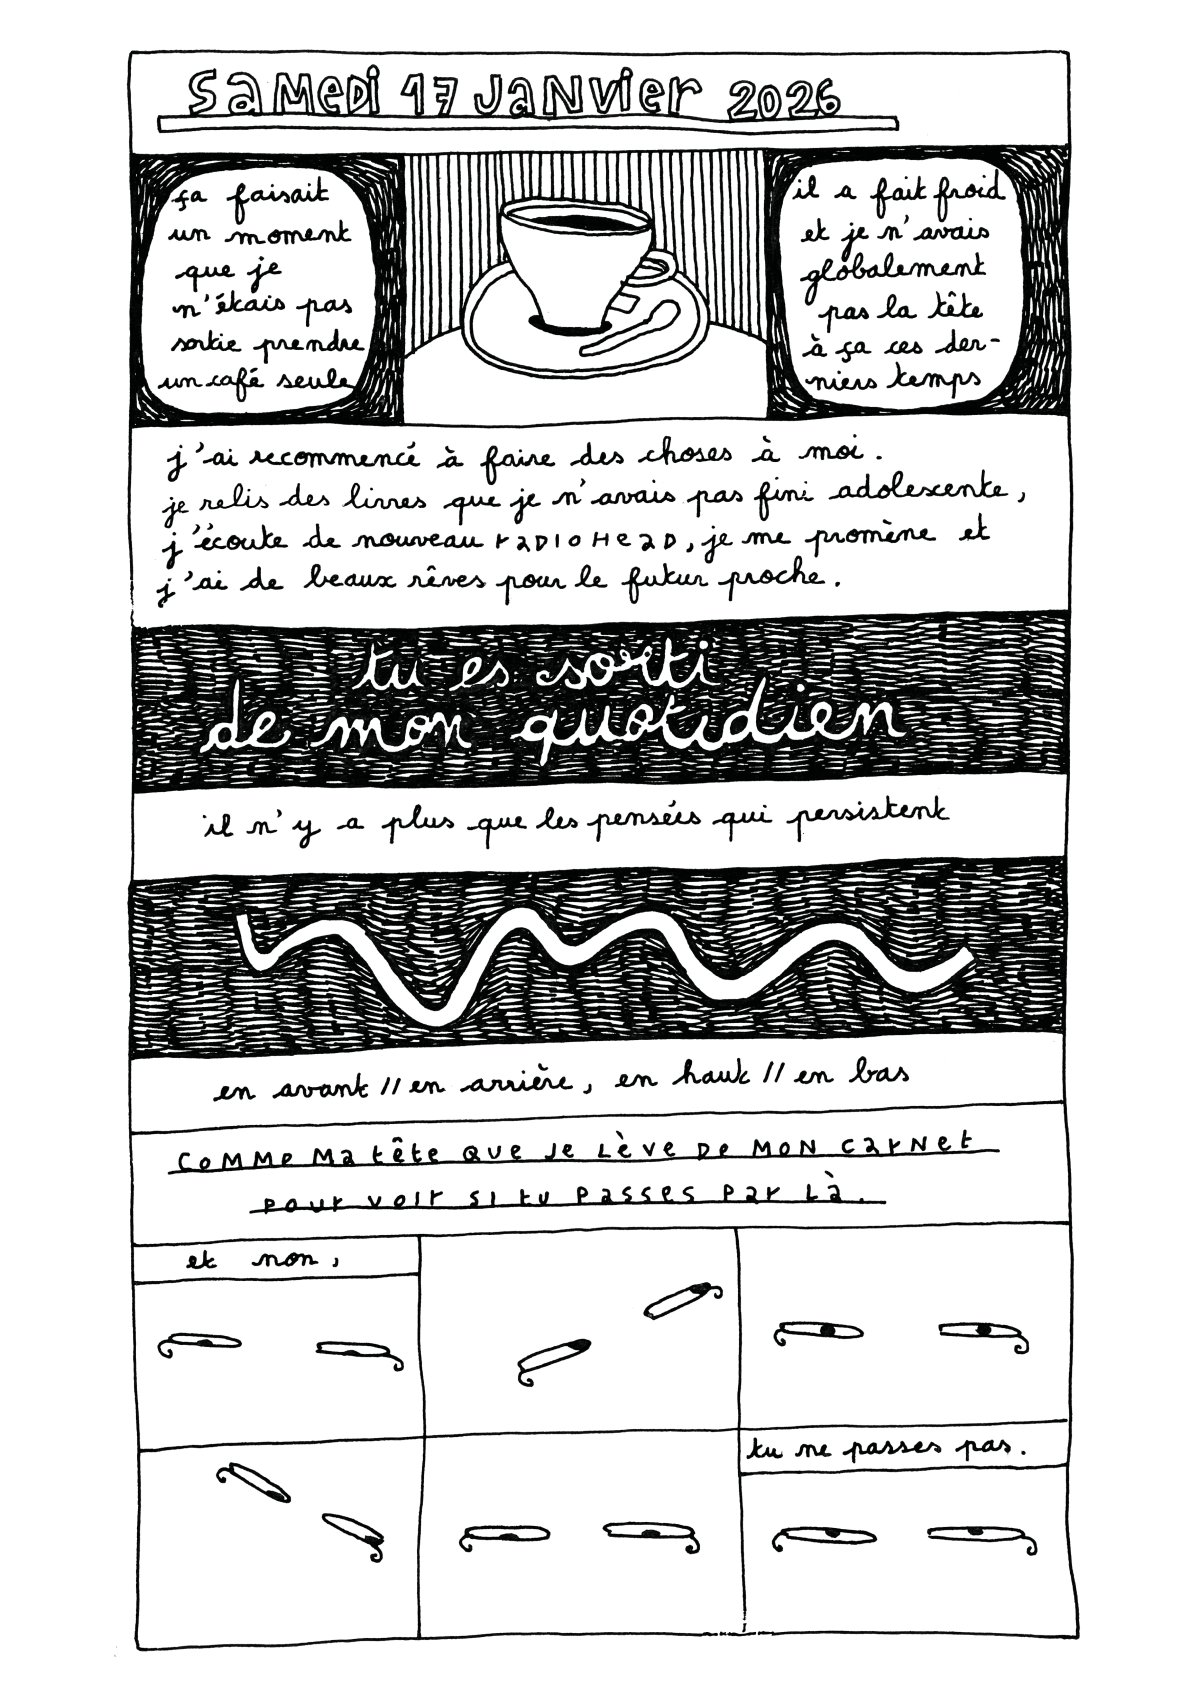 Samedi 17 Janvier 2026
ça faisait
un moment
que je
n'étais pas
sortie prendre
un café seule
il a fait froid
et je n'avais
globalement
pas la tête
à ça ces der-
niers temps
j'ai recommencé à faire des choses à moi.
je relis des livres que je n'avais pas fini adolescente,
j'écoute de nouveau radiohead, je me promène et
j'ai de beaux rêves pour le futur proche.
tu es sorti
de mon quotidien
il n'y a plus que les pensées qui persistent
en avant // en arrière, en haut // en bas
comme ma tête que je lève de mon carnet
pour voir si tu passes par là.
et non,
tu ne passes pas.